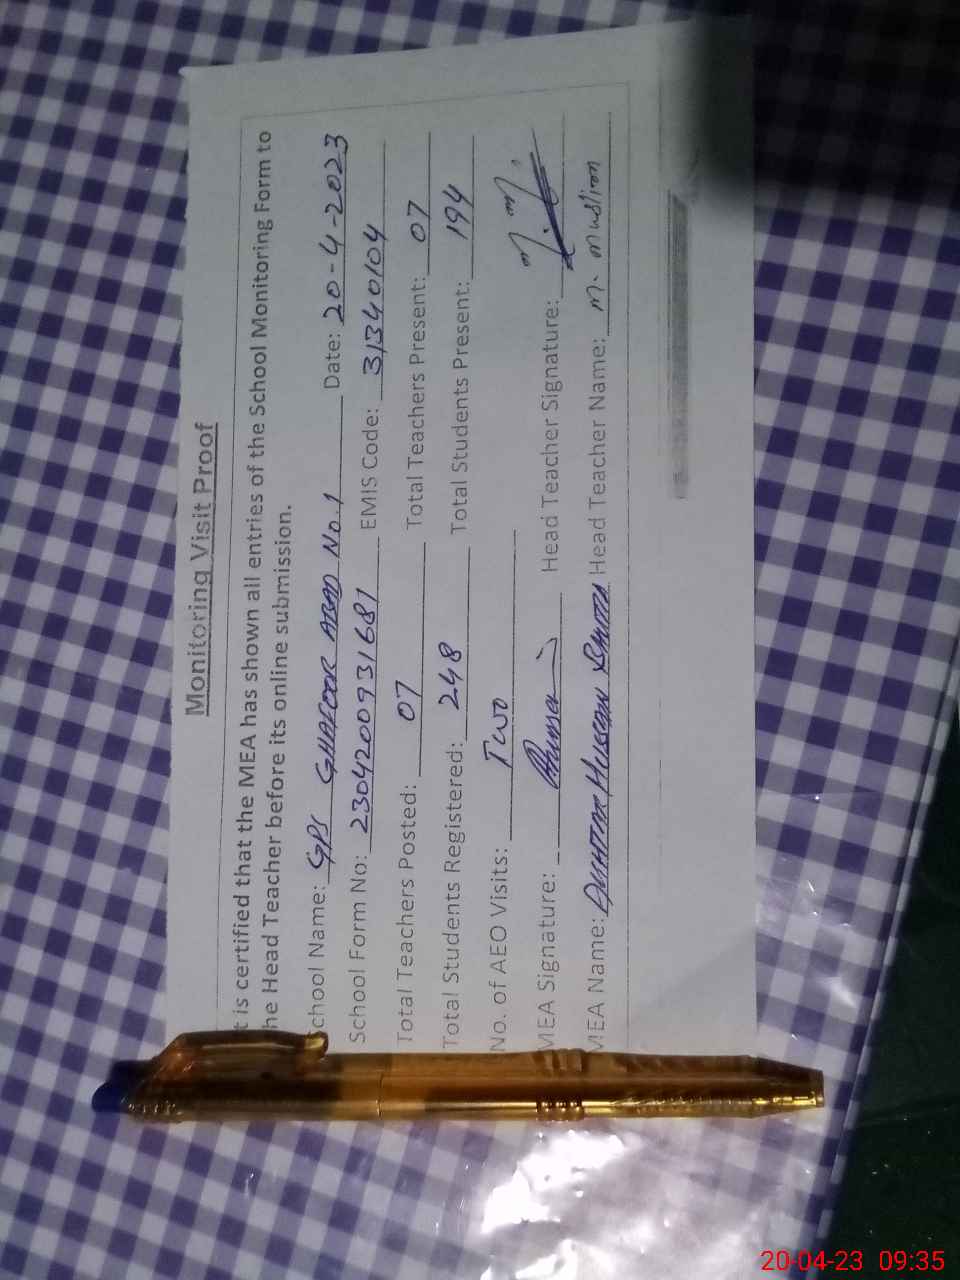 Monitoring Visit Proof
t is certified that the MEA has shown all entries of the School Monitoring Form to
he Head Teacher before its online submission.
chool Name: GPS GHAFOOR ABAD No.1 Date: 20-4-2023
School Form No: 2304200931681 EMIS Code: 31340104
Total Teachers Posted: 07 Total Teachers Present: 07
Total Students Registered: 248 Total Students Present: 194
No. of AEO Visits: Two
MEA Signature: Head Teacher Signature:
MEA Name: Hussain Head Teacher Name: M. Muslim
20-04-23 09:35